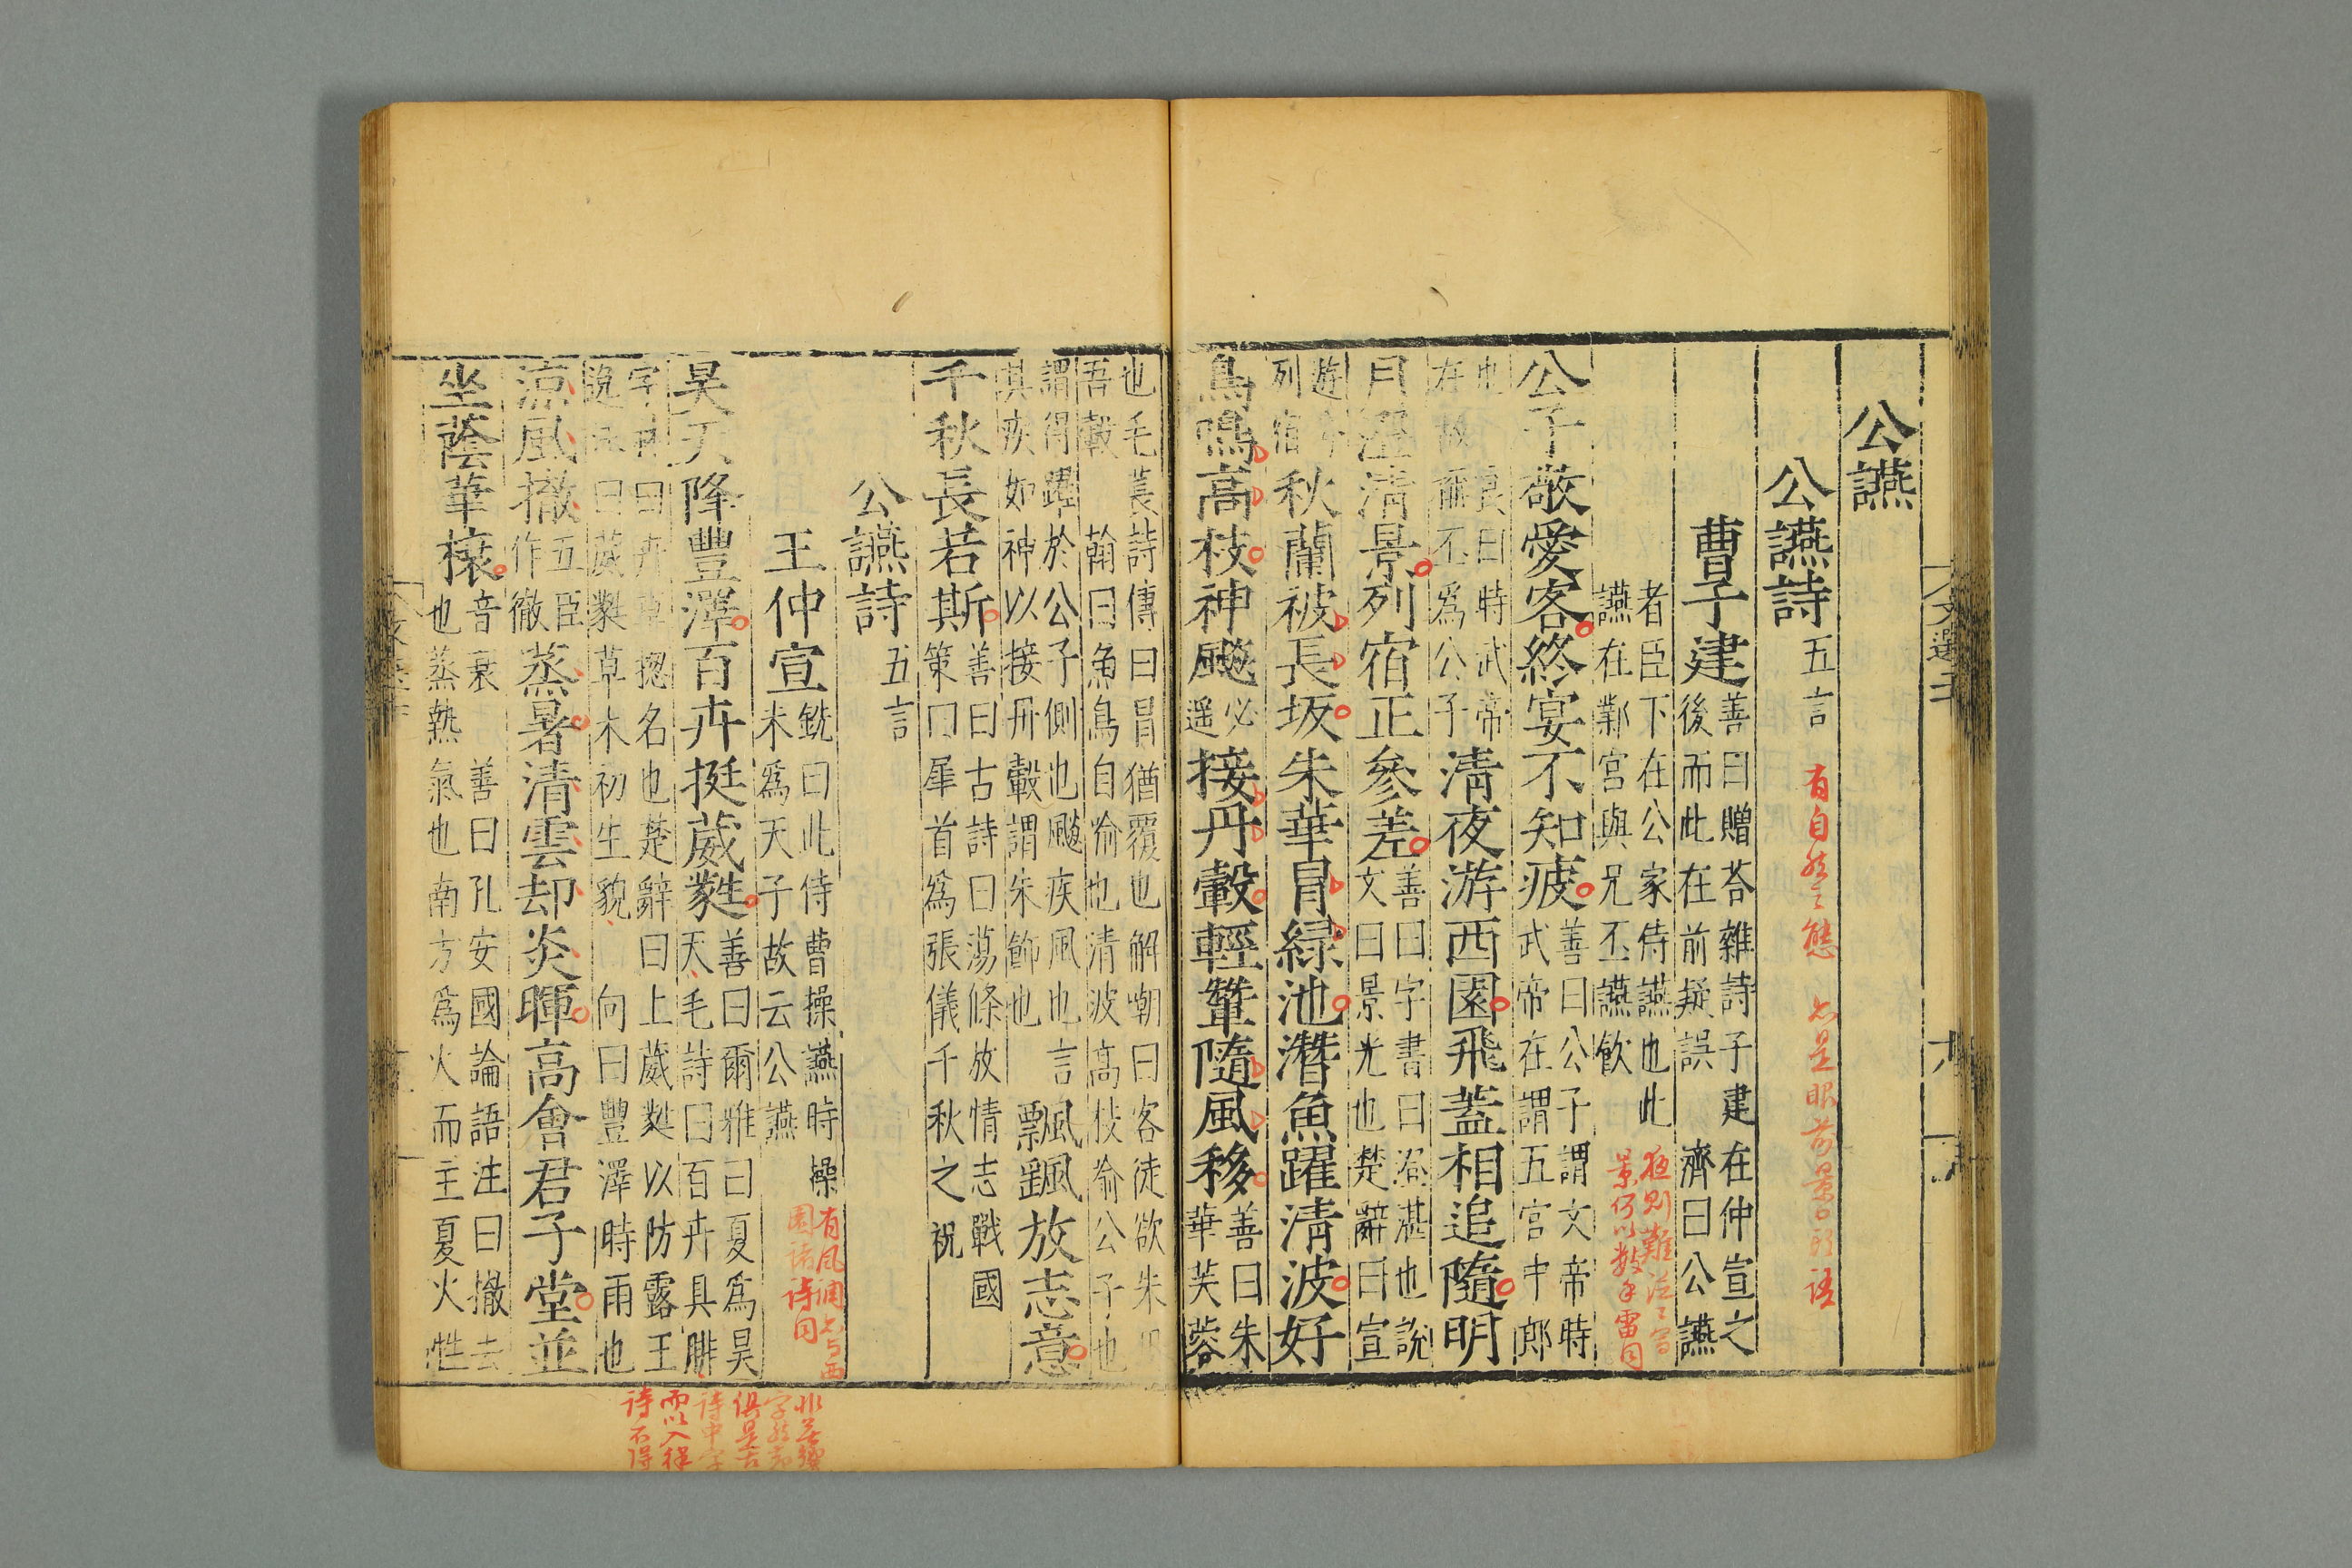 公讌
公讌詩 五言
曹子建 善曰贈荅雜詩子建在仲宣之
後而此在前疑誤 濟曰公讌
者臣下在公家侍讌也此
讌在鄴宮與兄丕讌飲
公子敬愛客終宴不知疲 善曰公子謂文帝時
武帝在謂五官中郎
也 良曰時武帝
在 爾丕爲公子 清夜游西園飛蓋相追隨明
月澄清景列宿正參差 善曰字書曰澄湛也說
文曰景光也楚辭曰宣
遊兮
列宿 秋蘭被長坂朱華冒綠池潛魚躍清波好
鳥鳴高枝神飈 必遥 接丹轂輕輦隨風移 善曰朱
華芙蓉
也毛萇詩傳曰冒猶覆也解嘲曰客徒欲朱
吾轂 翰曰魚鳥自喻也清波高枝喻公子也
謂得躍於公子側也飈疾風也言
其疾如神以接丹轂謂朱飾也 飄颻放志意
千秋長若斯 善曰古詩曰蕩滌放情志戰國
策曰犀首爲張儀千秋之祝
公讌詩 五言
王仲宣 銑曰此侍曹操讌時操
未爲天子故云公讌
昊天降豐澤百卉挺葳蕤 善曰爾雅曰夏爲昊
天毛詩曰百卉具腓
字林曰卉草揔名也楚辭曰上葳蕤以防露王
逸曰葳蕤草木初生貌 向曰豐澤時雨也
涼風撤 五臣作徹 蒸暑清雲却炎暉高會君子堂並
坐蔭華榱 音衰 善曰孔安國論語注曰撤去
也蒸熱氣也南方爲火而主夏火性
有自然之態